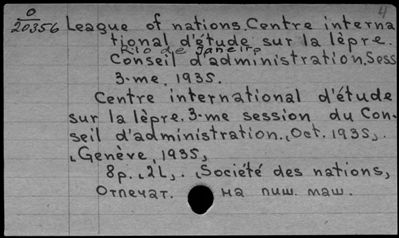 4
O
20356 League of nations. Centre interna
tional d'étude sur la lèpre.
Rio de Janeiro
Conseil d'administration. Sess
3-me, 1935.
Centre international d'étude
sur la lèpre. 3-me session du Con-
seil d'administration. „Oct. 1935„.
„Genève, 1935„
8p. „2l„. „Société des nations„
Отпечат. на пиш. маш.